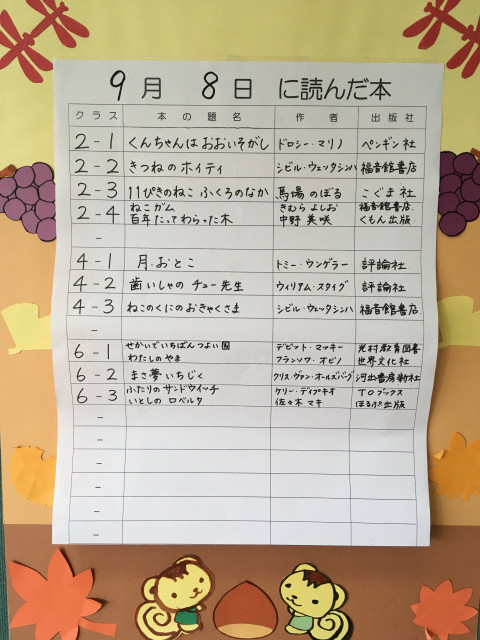 9月 8日 に読んだ本
クラス 本の題名 作者 出版社
2-1 くんちゃんはおおいそがし ドロシー・マリノ ペンギン社
2-2 きつねのホイティ シビル・ウェッタシンハ 福音館書店
2-3 11ぴきのねこ ふくろのなか 馬場のぼる こぐま社
2-4 ねこガム きむらよしお 福音館書店
百年たってわらった木 中野美咲 くもん出版
-
4-1 月おとこ トミー・ウンゲラー 評論社
4-2 歯いしゃのチュー先生 ウィリアム・スタイグ 評論社
4-3 ねこのくにのおきゃくさま シビル・ウェッタシンハ 福音館書店
-
6-1 せかいでいちばんつよい国 デビット・マッキー 光村教育図書
わたしのやま フランソワ・オビノ 世界文化社
6-2 まさ夢いちじく クリス・ヴァン・オールズバーグ 河出書房新社
6-3 ふたりのサンドウィッチ ケリー・ディプキオ TOブックス
いとしのロベルタ 佐々木マキ ほるぷ出版
-
-
-
-
-
-